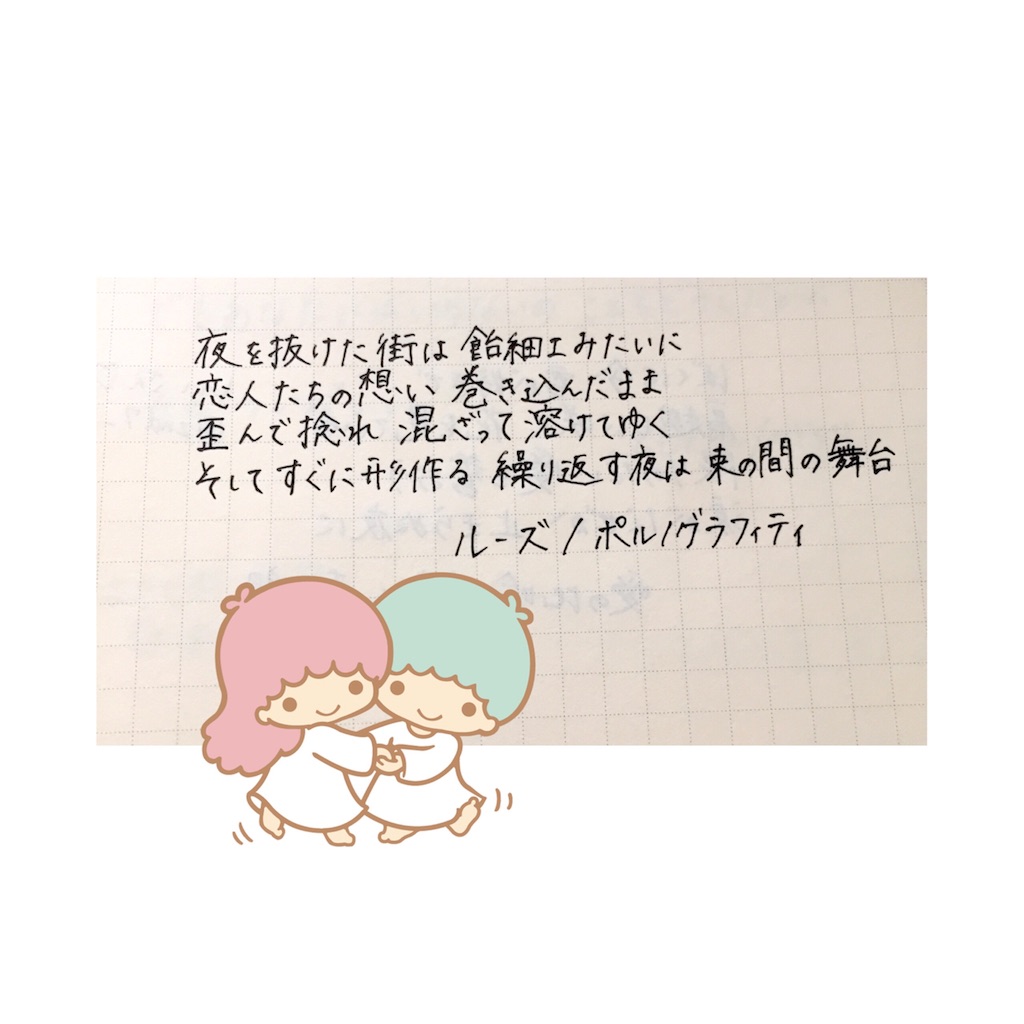 夜を抜けた街は 飴細工みたいに
恋人たちの想い 巻き込んだまま
歪んで捻れ 混ざって溶けてゆく
そしてすぐに形作る 繰り返す夜は 束の間の舞台
ルーズ/ポルノグラフィティ